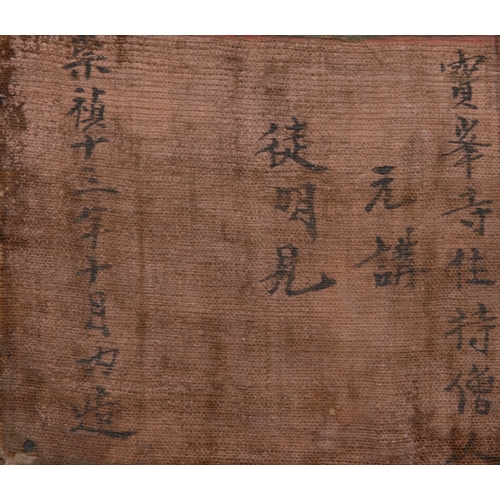 寶峯寺住持僧人
元講
徒明見
崇禎十三年十月內造